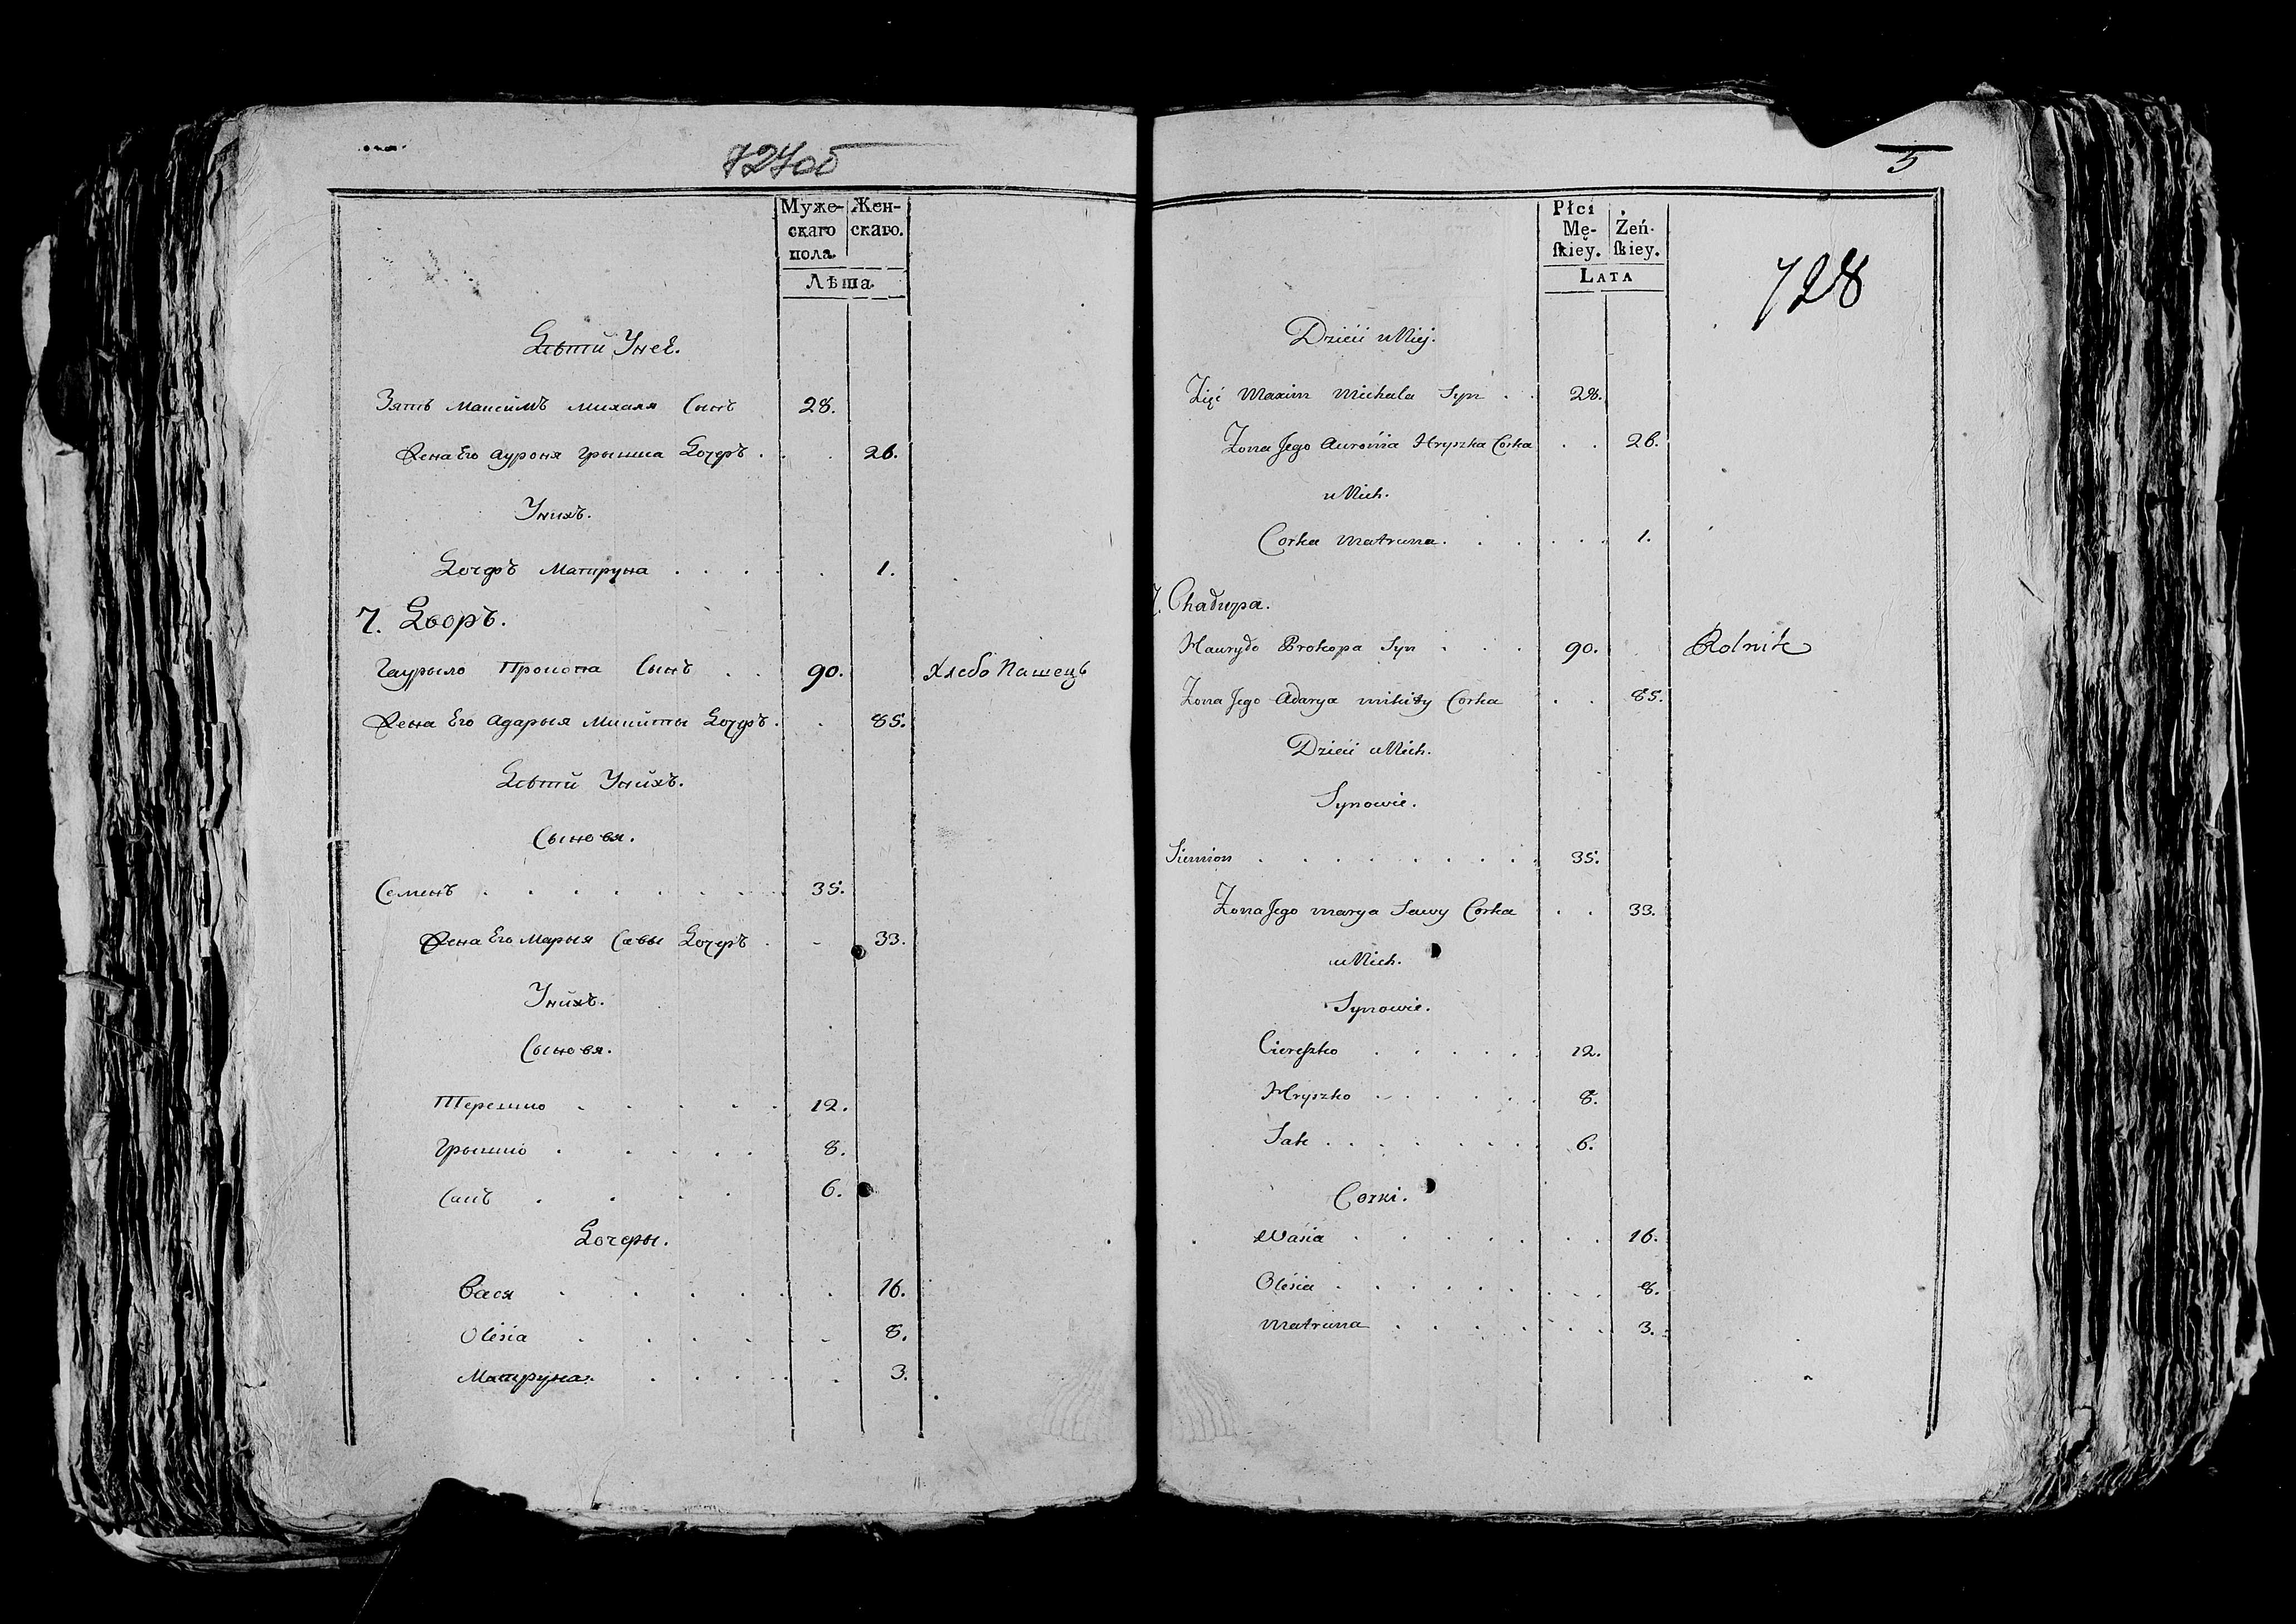 727об
Муже-
скаго
пола.
Жен-
скаго.
Лѣта.
Дѣти Унеѣ.
Зять Максимъ Михала Сынъ . 28.
Жена Его Ауроня Грышка Дочеръ . . . 26.
Унихъ.
Дочеръ Матруна . . . . . 1.
7. Дворъ.
Гаурыло Прокопа Сынъ . . 90. Хлебо Пашецъ
Жена Его Адарыя Микиты Дочеръ . . 85.
Дѣти Унихъ.
Сыновя.
Семенъ . . . . . . . 35.
Жена Его Марыя Савы Дочеръ . - 33.
Унихъ.
Сыновя.
Терешко . . . . . 12.
Грышко . . . . . 8.
Сакъ . . . . 6.
Дочеры.
Вася . . . . . . 16.
Olesia . . . . . . 8.
Матруна . . . . . 3.
5
728
Płci
Mę-
skiey.
Żeń-
skiey.
LATA
Dzieci u Niej.
Zięć Maxim Michala Syn . . 28.
Żona Jego Auronia Hryszka Corka . . 26.
u Nich.
Corka Matruna . . . . . . 1.
7. Chałupa.
Hauryło Prokopa Syn . . . 90. Rolnik
Żona Jego Adarya Mikity Corka . . 85.
Dzieci u Nich.
Synowie.
Siemion . . . . . . . . . 35.
Żona Jego Marya Sawy Corka . . 33.
u Nich.
Synowie.
Ciereszko . . . . . 12.
Hryszko . . . . . . 8.
Sak . . . . . . . 6.
Corki.
Wasia . . . . . . . 16.
Olesia . . . . . . . . 8.
Matruna . . . . . . . 3.